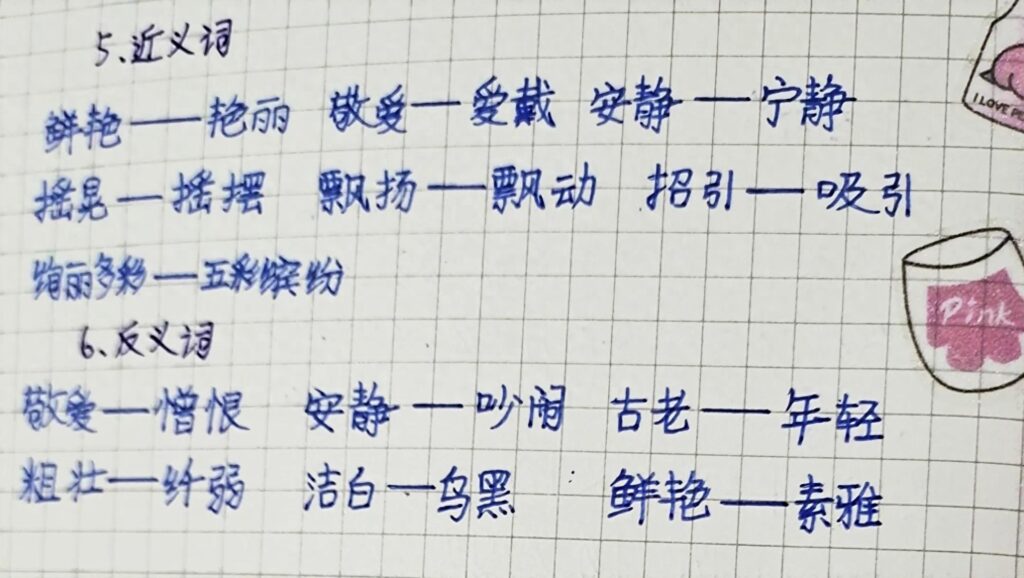 5、近义词
鲜艳——艳丽 敬爱——爱戴 安静——宁静
摇晃——摇摆 飘扬——飘动 招引——吸引
绚丽多彩——五彩缤纷
6、反义词
敬爱——憎恨 安静——吵闹 古老——年轻
粗壮——纤弱 洁白——乌黑 鲜艳——素雅
I LOVE
Pink